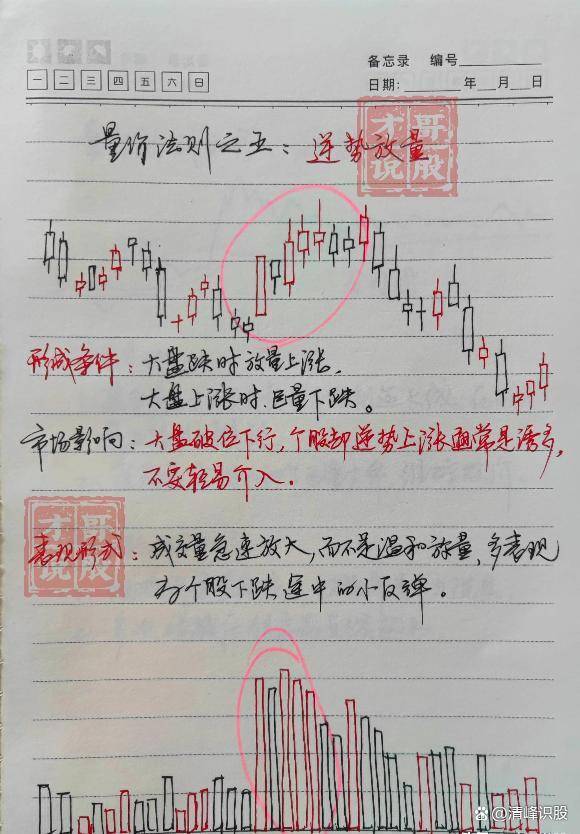 备忘录 编号
一 二 三 四 五 六 日
日期: 年 月 日
才哥说股
量价法则之五：逆势放量
形成条件：大盘跌时放量上涨，
大盘上涨时巨量下跌。
市场影响：大盘破位下行，个股却逆势上涨通常是诱多，
不要轻易介入．
才哥说股
表现形式：成交量急速放大，而不是温和放量，多表现
为个股下跌途中的小反弹。
@清峰识股